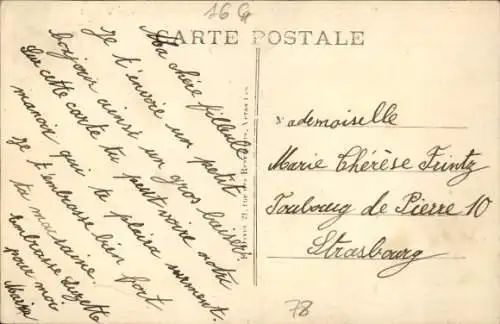 16 G
CARTE POSTALE
Ma chère filleule
Je t'envoie un petit
bonjour ainsi un gros baiser
Sur cette carte tu peut voire notre
manoir qui te plaira surement.
Je t'embrasse bien fort
ta marraine.
Embrasse Suzette
pour moi
Mademoiselle
Marie Chérèse Frintz
Foubourg de Pierre 10
Strasbourg
78